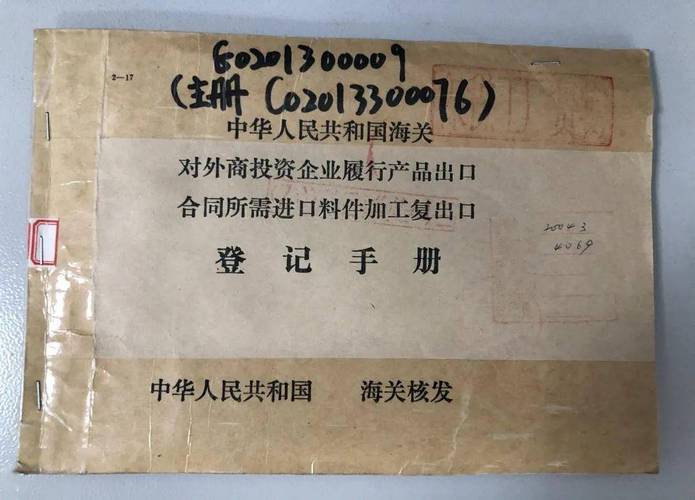 G0201300009
(主册 C02013300076)
2—17
中华人民共和国海关
对外商投资企业履行产品出口
合同所需进口料件加工复出口
登记手册
20043
4069
中华人民共和国 海关核发